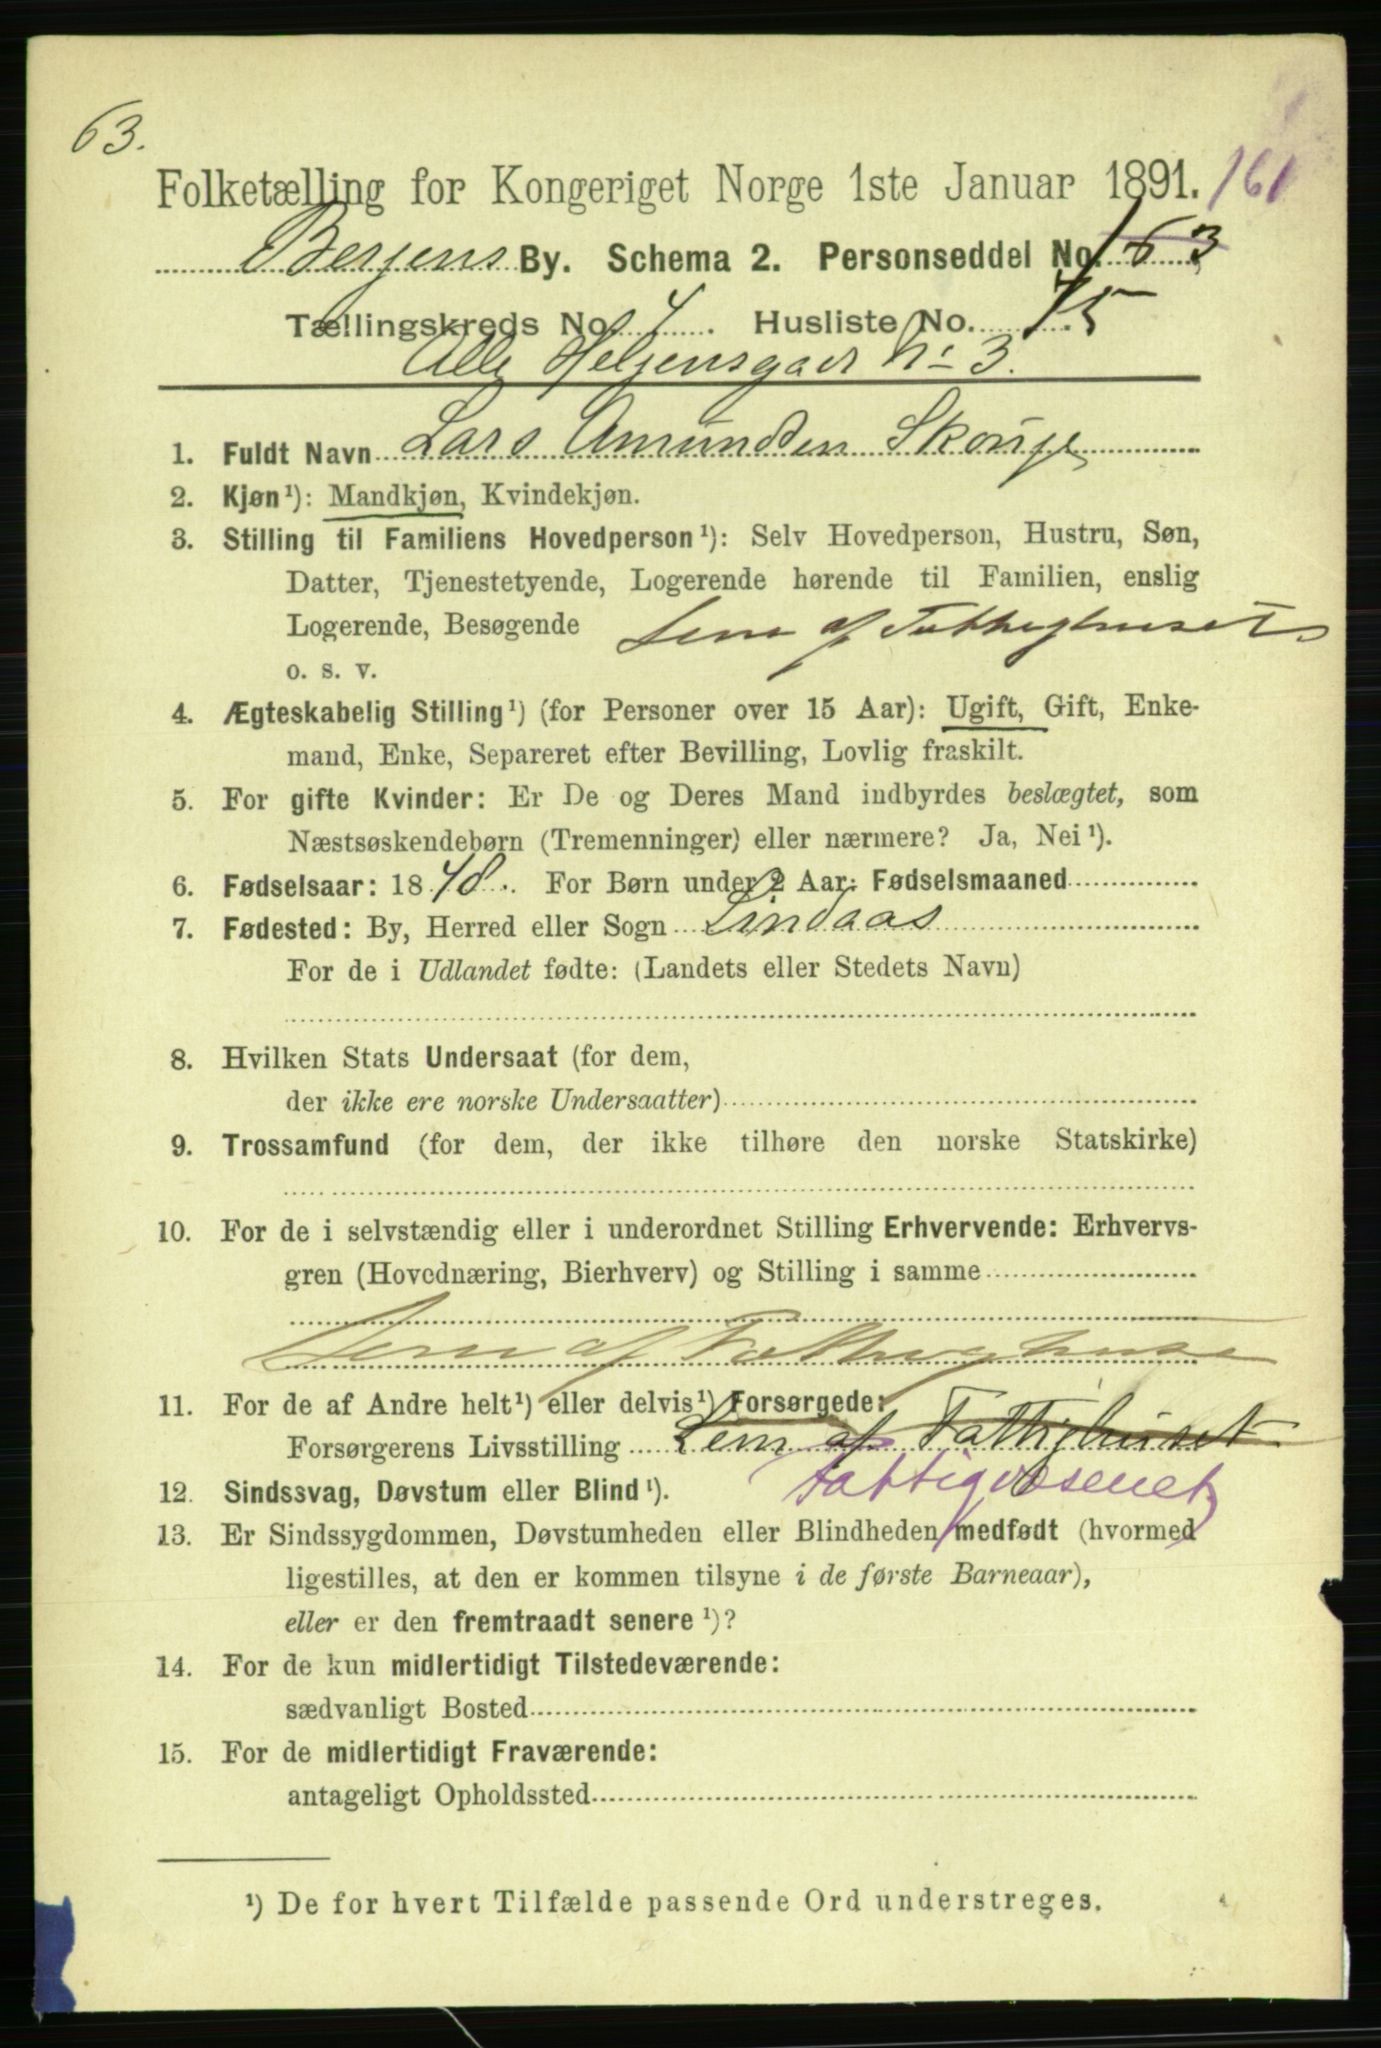 63.
Folketælling for Kongeriget Norge 1ste Januar 1891. 161
Bergens By. Schema 2. Personseddel No. 163
Tællingskreds No. 4. Husliste No. 45
Alle Helgensgade No 3.
1. Fuldt Navn Lars Amundsen Skouge
2. Kjøn¹): Mandkjøn, Kvindekjøn.
3. Stilling til Familiens Hovedperson¹): Selv Hovedperson, Hustru, Søn,
Datter, Tjenestetyende, Logerende hørende til Familien, enslig
Logerende, Besøgende Lem af Fattighuset
o. s. v.
4. Ægteskabelig Stilling¹) (for Personer over 15 Aar): Ugift, Gift, Enke-
mand, Enke, Separeret efter Bevilling, Lovlig fraskilt.
5. For gifte Kvinder: Er De og Deres Mand indbyrdes beslægtet, som
Næstsøskendebørn (Tremenninger) eller nærmere? Ja, Nei¹).
6. Fødselsaar: 1848. For Børn under 2 Aar: Fødselsmaaned
7. Fødested: By, Herred eller Sogn Lindaas
For de i Udlandet fødte: (Landets eller Stedets Navn)
8. Hvilken Stats Undersaat (for dem,
der ikke ere norske Undersaatter)
9. Trossamfund (for dem, der ikke tilhøre den norske Statskirke)
10. For de i selvstændig eller i underordnet Stilling Erhvervende: Erhvervs-
gren (Hovednæring, Bierhverv) og Stilling i samme
Lem af Fattighuset
11. For de af Andre helt¹) eller delvis¹) Forsørgede:
Forsørgerens Livsstilling Lem af Fattighuset
Fattigvæsenet
12. Sindssvag, Døvstum eller Blind¹).
13. Er Sindssygdommen, Døvstumheden eller Blindheden medfødt (hvormed
ligestilles, at den er kommen tilsyne i de første Barneaar),
eller er den fremtraadt senere¹)?
14. For de kun midlertidigt Tilstedeværende:
sædvanligt Bosted
15. For de midlertidigt Fraværende:
antageligt Opholdssted
¹) De for hvert Tilfælde passende Ord understreges.